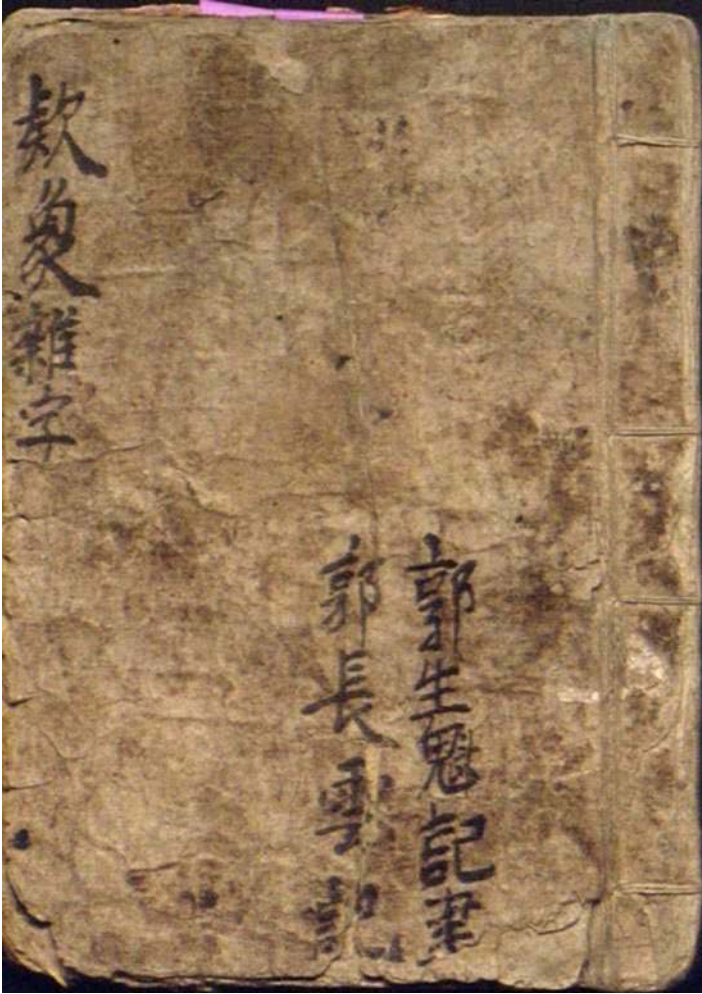 郭生魁記書
郭長雲記
欵雜字